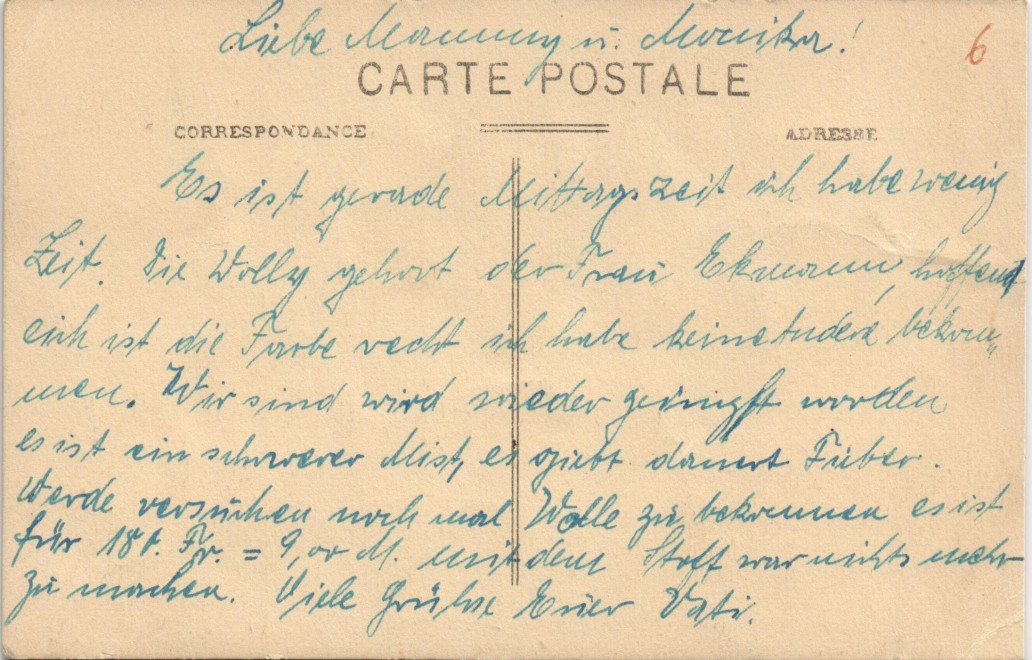 Liebe Mammy u. Monika!
6
CARTE POSTALE
CORRESPONDANCE
ADRESSE
Es ist gerade Mittagszeit ich habe wenig
Zeit. Die Wolly gehört der Frau Ekmann, hoffent
lich ist die Farbe recht ich habe keine Andere bekom„
men. Wir sind wird wieder geimpft worden
es ist ein schwerer Mist, es giebt dauert Fieber.
Werde versuchen noch mal Wolle zu bekommen es ist
für 180. Fr. = 9,00 M. mit dem Stoff war nichts mehr
zu machen. Viele Grühse Euer Vati.